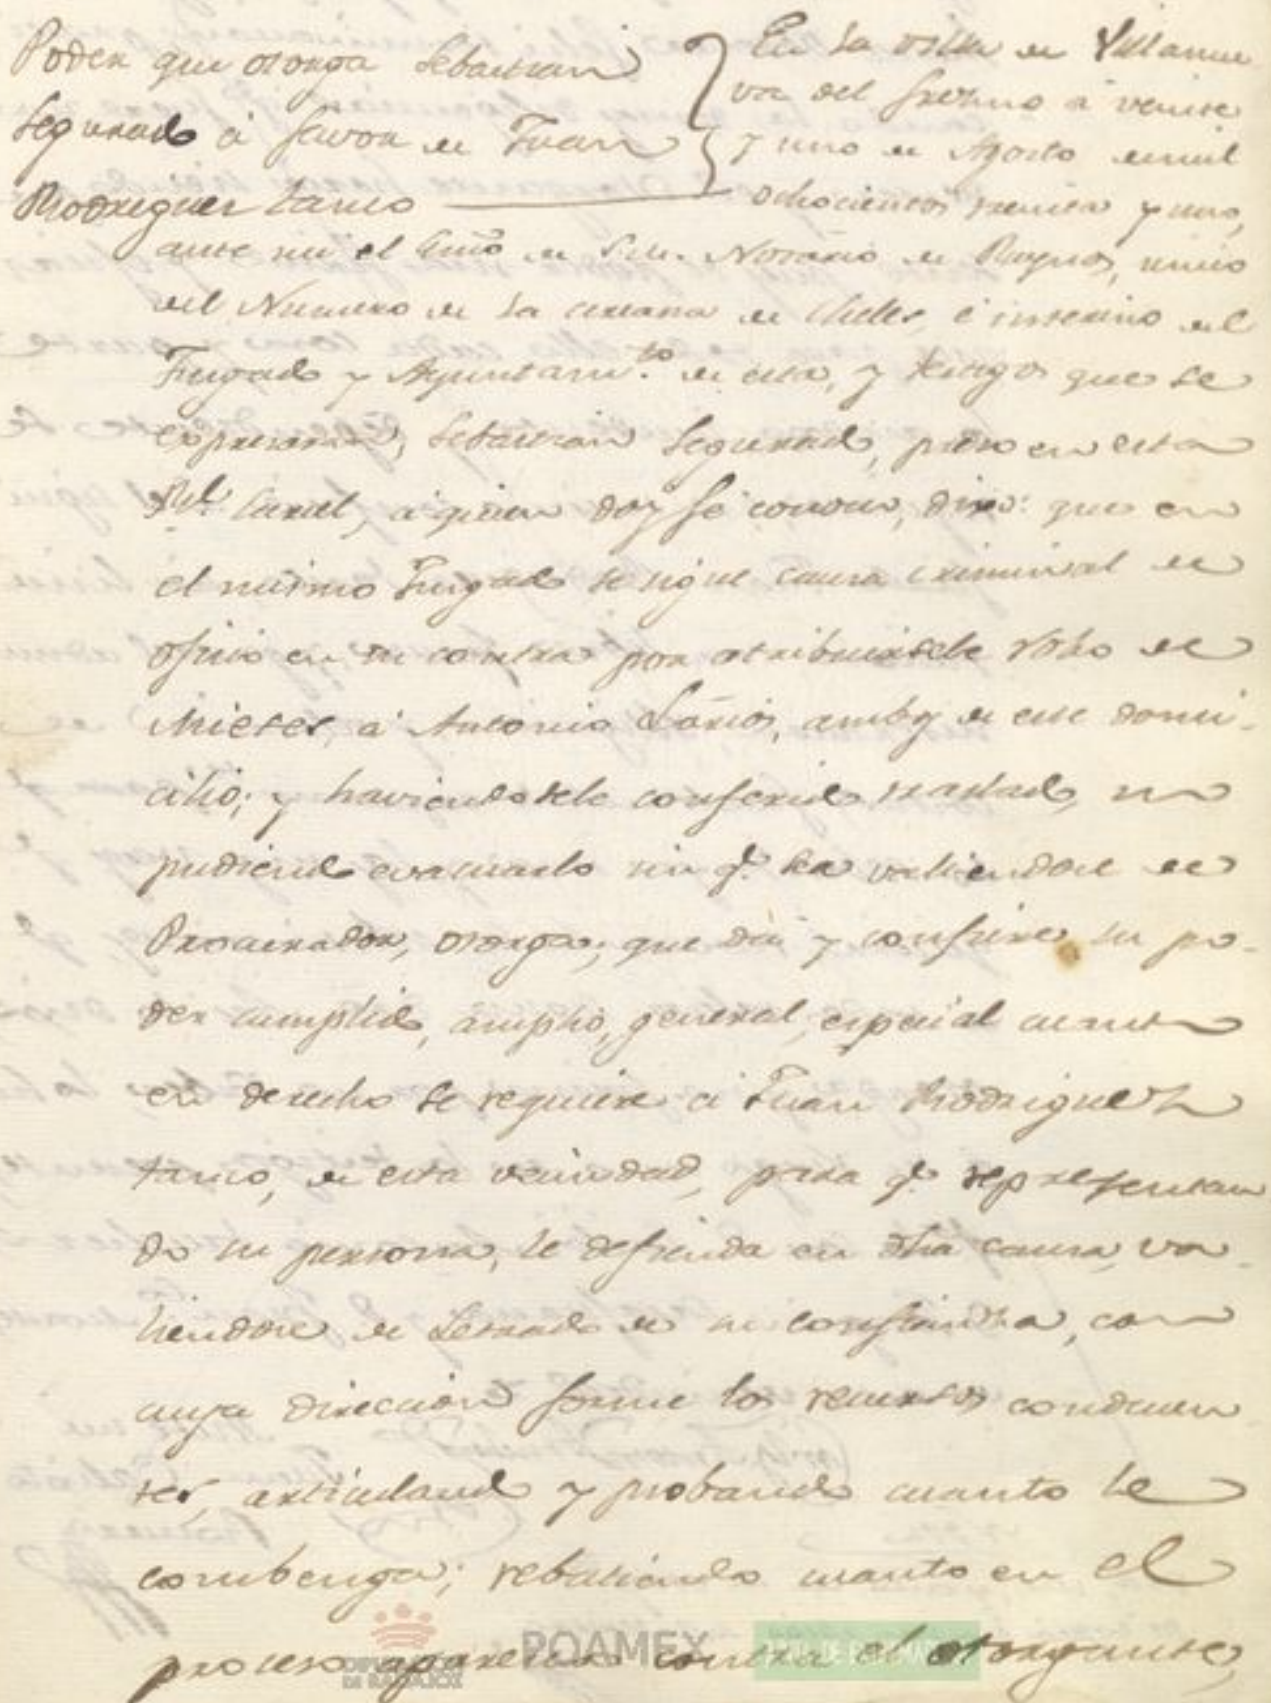 Poder que otorga Sebastian
Segurado á favor de Juan
Rodriguez tarrio
En la villa de Villanue
va del fresno á veinte
y uno de Agosto de mil
ochocientos treinta y uno,
ante mi el Essno de S.M. Notario de Reynos, unico
del Numero de la cercana de Cheles, é interino del
Juzgado y Ayuntam.to de esta, y testigos que se
expresaran, Sebastian Segurado, preso en esta
Rl. Carcel, á quien doy fé conozco, dixo: que en
el mismo Juzgado se sigue causa criminal de
oficio en su contra por atribuirsele robo de
Mieses, á Antonio Larios, ambos de este domi-
cilio; y haviendosele conferido traslado, no
pudiendo evacuarlo sin q.e sea valiendose de
Procurador, otorga; que dá y confiere su po-
der cumplido, ámplio, general, especial cuanto
en derecho se requiere á Juan Rodriguez
tarrio, de esta vecindad, para q.e representan
do su persona, le defienda en dha causa, va-
liendose de Letrado de su confianza, con
cuya direccion forme los recursos conducen
tes, articulando y probando cuanto le
combenga; rebatiendo cuanto en el
proceso aparezca contra el otorgante,
DIPUTACIÓN
DE BADAJOZ
POAMEX